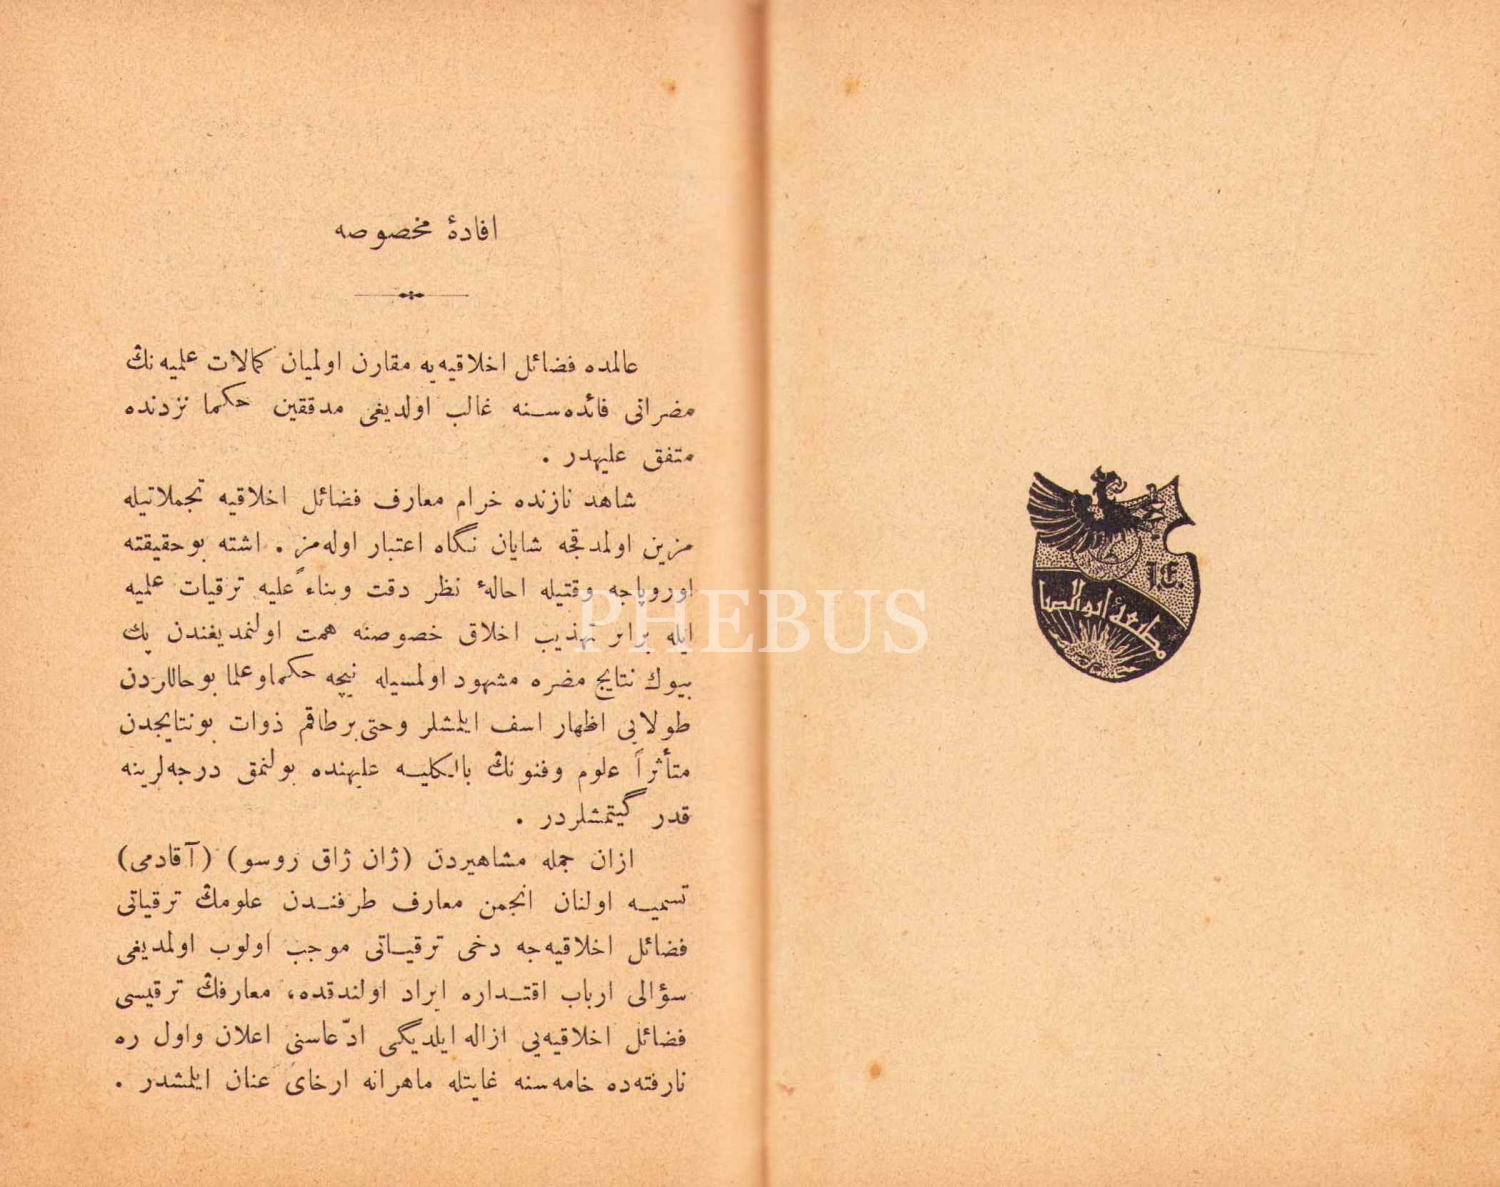 J.E.
مطبعهٔ ابوالضیا
افادهٔ مخصوصه
عالمده فضائل اخلاقیه‌یه مقارن اولمیان كمالات علمیه نڭ
مضراتی فائده‌سـنه غالب اولدیغی مدققین حكما نزدنده
متفق علیهدر .
شاهد نازنده خرام معارف فضائل اخلاقیه تجملاتیله
مزین اولمدقجه شایان نگاه اعتبار اوله‌مز . اشته بوحقیقته
اوروپاجه وقتیله احالهٔ نظر دقت وبناءً علیه ترقیات علمیه
ایله برابر تهذیب اخلاق خصوصنه همت اولنمدیغندن پك
بیوك نتایج مضره مشهود اولمسیله نیچه حكماوعلما بوحاللردن
طولایی اظهار اسف ایلمشلر وحتی برطاقم ذوات بونتایجدن
متأثراً علوم وفنونڭ بالكلیـه علیهنده بولنمق درجه‌لرینه
قدر گیتمشلردر .
ازان جمله مشاهیردن (ژان ژاق روسو) (آقادمی)
تسمیـه اولنان انجمن معارف طرفنـدن علومڭ ترقیاتی
فضائل اخلاقیه‌جه دخی ترقیـاتی موجب اولوب اولمدیغی
سؤالی ارباب اقتـداره ایراد اولندقده، معارفڭ ترقیسی
فضائل اخلاقیه‌یی ازاله ایلدیگی ادّعاسنی اعلان واول ره
نارفته‌ده خامه‌سنه غایتله ماهرانه ارخای عنان ایلمشدر .
PHEBUS